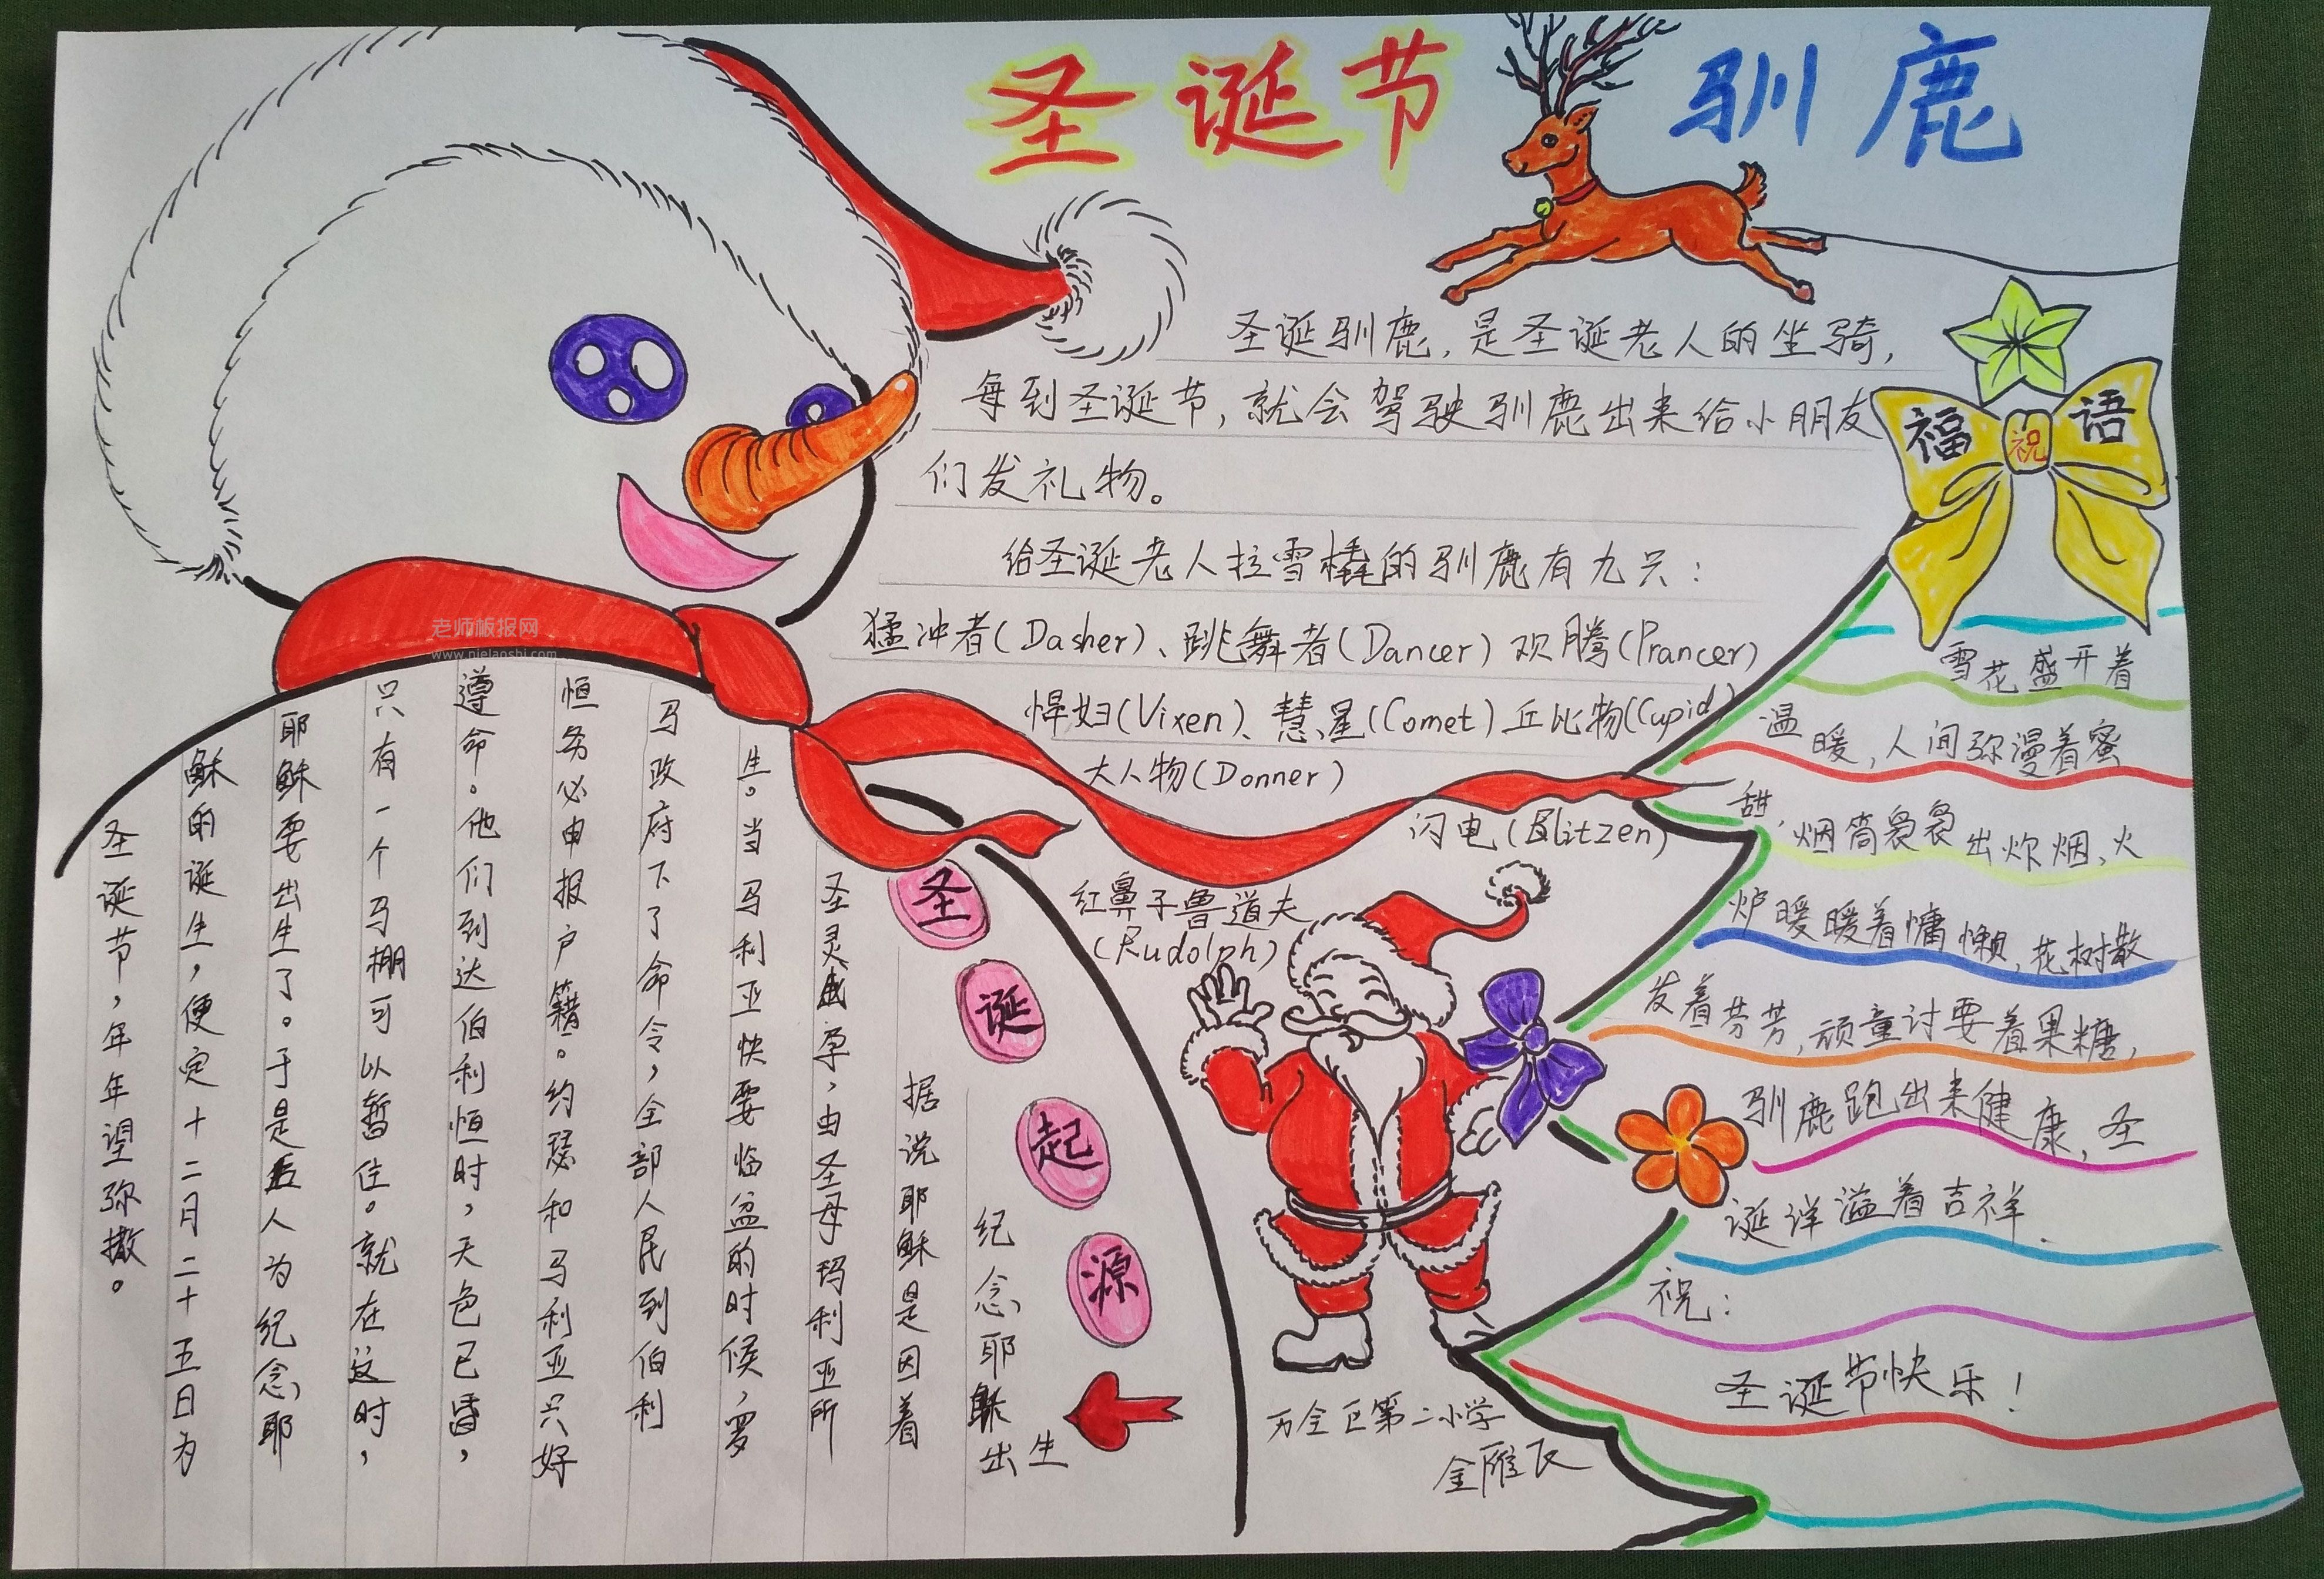 圣诞节
驯鹿
圣诞驯鹿,是圣诞老人的坐骑,
每到圣诞节,就会驾驶驯鹿出来给小朋友
们发礼物。
给圣诞老人拉雪橇的驯鹿有九只:
猛冲者(Dasher)、跳舞者(Dancer)欢腾(Prancer)
悍妇(Vixen)、慧星(Comet)丘比物(Cupid)
大人物(Donner)
闪电(Blitzen)
红鼻子鲁道夫
(Rudolph)
福祝语
雪花盛开着
温暖,人间弥漫着蜜
甜,烟筒袅袅出炊烟、火
炉暖暖着慵懒,花树散
发着芬芳,顽童讨要着果糖,
驯鹿跑出来健康,圣
诞洋溢着吉祥.
祝:
圣诞节快乐!
圣诞起源
纪念耶稣出生
据说耶稣是因着
圣灵成孕,由圣母玛利亚所
生。当马利亚快要临盆的时候,罗
马政府下了命令,全部人民到伯利
恒务必申报户籍。约瑟和马利亚只好
遵命。他们到达伯利恒时,天色已昏,
只有一个马棚可以暂住。就在这时,
耶稣要出生了。于是后人为纪念耶
稣的诞生,便定十二月二十五日为
圣诞节,年年望弥撒。
万全区第二小学
老师板报网
www.nielaoshi.com